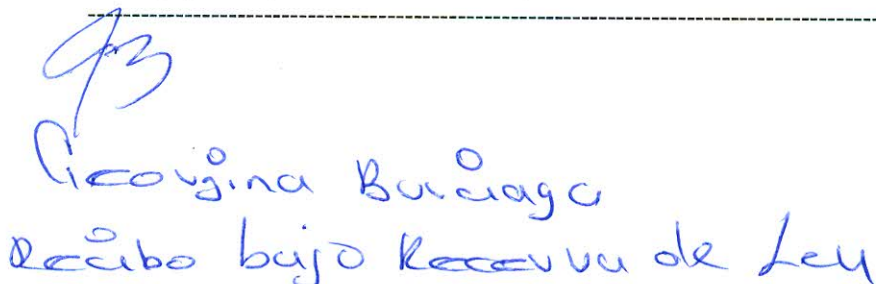 Georgina Buriaga
Recibo bajo Reserva de Ley